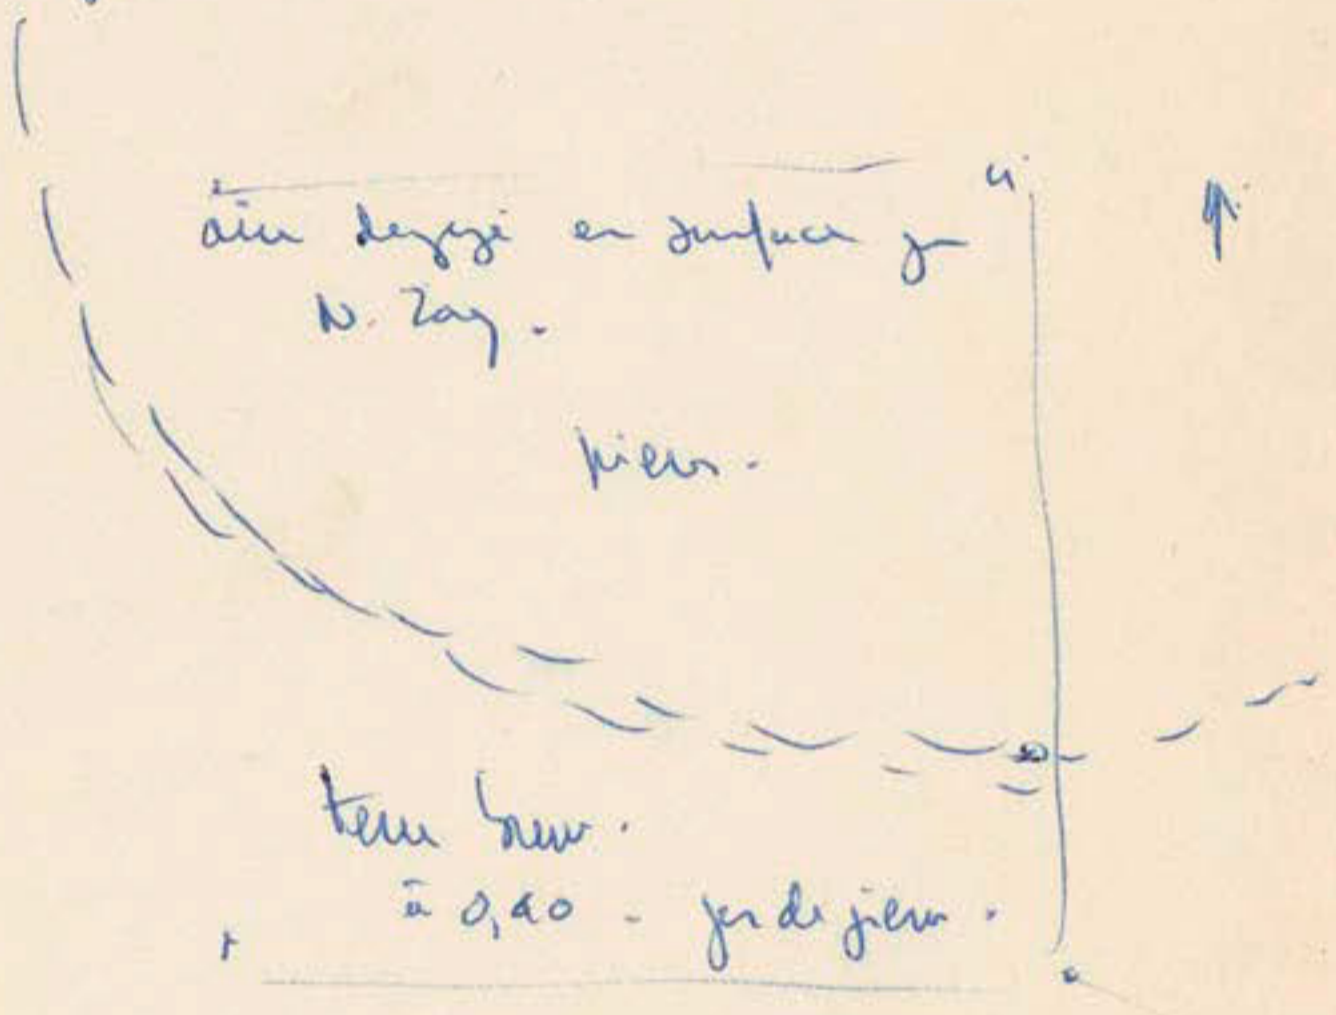 aire dégagé en surface par
N. Zag.
pierres.
terre brune.
à 0,40 - pas de pierres.